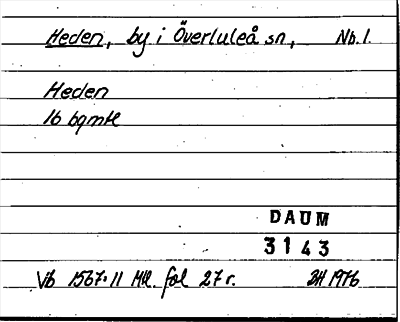 Heden, by i Överluleå sn, Nb.l.
Heden
16 bqmtl
DAUM
3143
Vb 1567:11 Mtl. fol 27 r. 1976